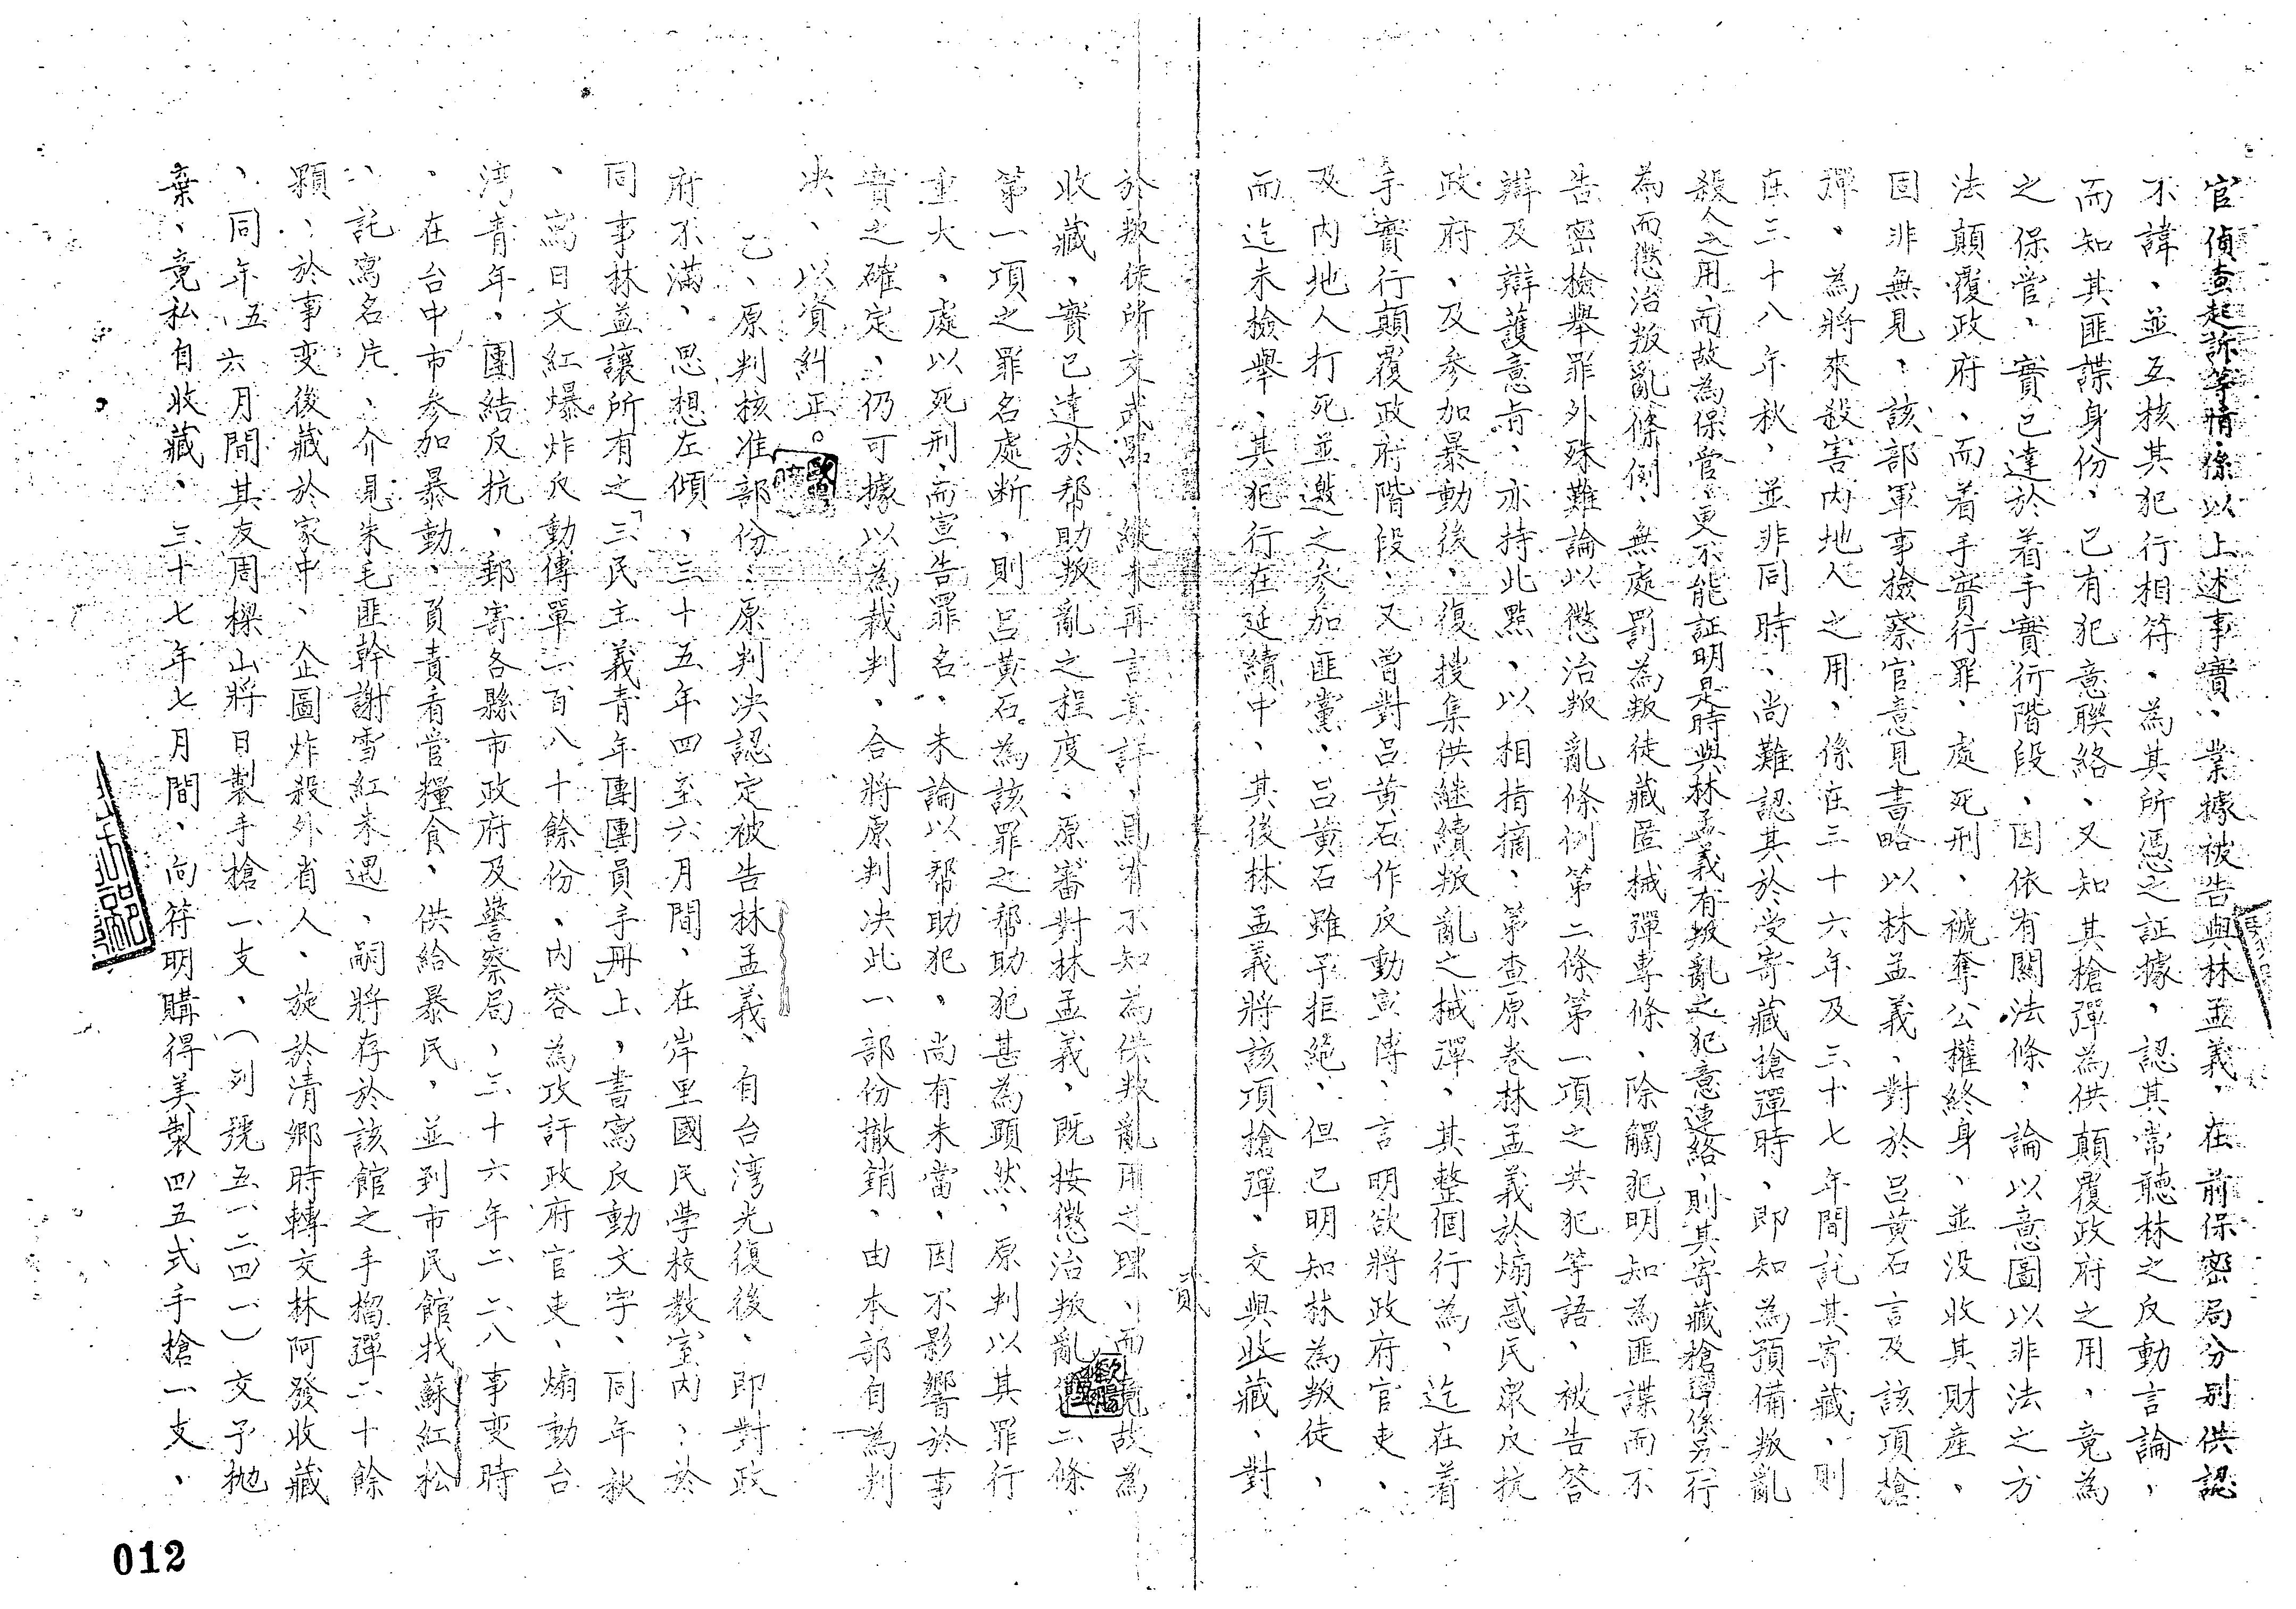 官偵查起訴等情係以上述事實、業據被告與林孟義、在前保密局分別供認
不諱、並互核其犯行相符、為其所憑之証據、認其常聽林之反動言論、
而知其匪諜身份、已有犯意聯絡、又知其槍彈為供顛覆政府之用、竟為
之保管、實已達於着手實行階段、因依有關法條、論以意圖以非法之方
法顛覆政府、而着手實行罪、處死刑、褫奪公權終身、並没收其財産、
固非無見、該部軍事檢察官意見書略以林孟義、對於呂黃石言及該項槍
彈、為將來殺害内地人之用、係在三十六年及三十七年間託其寄藏、則
在三十八年秋、並非同時、尚難認其於受寄藏槍彈時、即知為預備叛亂
殺人之用而故為保管、更不能証明是時與林孟義有叛亂之犯意連絡、則其寄藏槍彈係另一行
為而懲治叛亂條例、無處罰為叛徒藏匿械彈專條、除觸犯明知為匪諜而不
告密檢舉罪外殊難論以懲治叛亂條例第二條第一項之共犯等語、被告答
辯及辯護意旨、亦持此點、以相指摘、第查原卷林孟義於煽惑民眾反抗
政府、及参加暴動後、復搜集供継續叛亂之械彈、其整個行為、迄在着
手實行顛覆政府階段、又曾對呂黃石作反動宣傳、言明欲將政府官吏、
及内地人打死並邀之参加匪黨、呂黃石雖予拒絕、但已明知林為叛徒、
而迄未檢舉、其犯行在延續中、其後林孟義將該項槍彈、交與收藏、對
貳
於叛徒所交武器、縱未再言其詳、焉有不知為供叛亂用之理、而竟故為
收藏、實已達於帮助叛亂之程度、原審對林孟義、既按懲治叛亂條二條
第一項之罪名處断、則呂黃石為該罪之帮助犯甚為顕然、原判以其罪行
重大、處以死刑、而宣告罪名、未論以帮助犯、尚有未當、因不影響於事
實之確定、仍可據以為裁判、合將原判決此一部份撤銷、由本部自為判
決、以資糾正。
乙、原判核准部份：原判決認定被告林孟義、自台湾光復後、即對政
府不滿、思想左傾、三十五年四至六月間、在岸里國民学校教室内、於
同事林益讓所有之「三民主義青年團團員手冊」上、書寫反動文字、同年秋
、寫日文紅爆炸反動傳單二百八十餘份、内容為攻訐政府官吏、煽動台
湾青年、團結反抗、郵寄各縣市政府及警察局、三十六年二二八事变時
、在台中市参加暴動、負責看管糧食、供給暴民、並到市民館找蘇紅松
、託寫名片、介見朱毛匪幹謝雪紅未遇、嗣將存於該館之手榴彈二十餘
顆、於事变後藏於家中、企圖炸殺外省人、旋於清鄉時轉交林阿發收藏
、同年五六月間其友周樑山將日製手槍一支、（列號五一二四一）交予抛
棄、竟私自收藏、三十七年七月間、向符明購得美製四五式手槍一支、
012